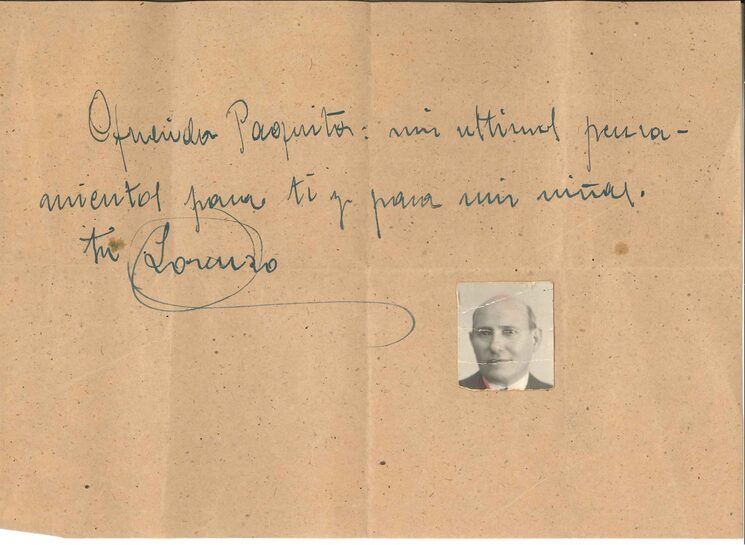 Querida Paquita: mis ultimos pensa-
mientos para ti y para mis niñas.
tu Lorenzo